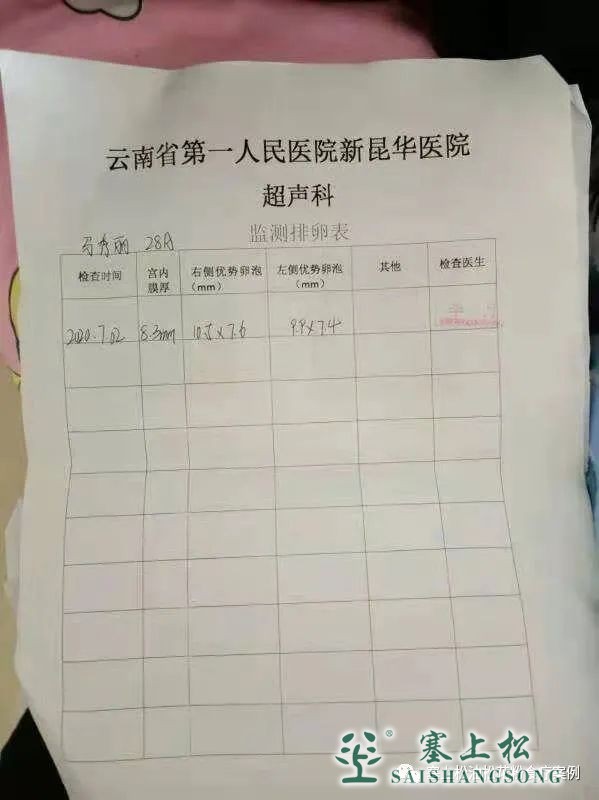 云南省第一人民医院新昆华医院
超声科
监测排卵表
马秀丽 28岁
检查时间 宫内膜厚 右侧优势卵泡（mm） 左侧优势卵泡（mm） 其他 检查医生
2020.7.02 8.3mm 10.5×7.6 9.9×7.4
塞上松
SAISHANGSONG